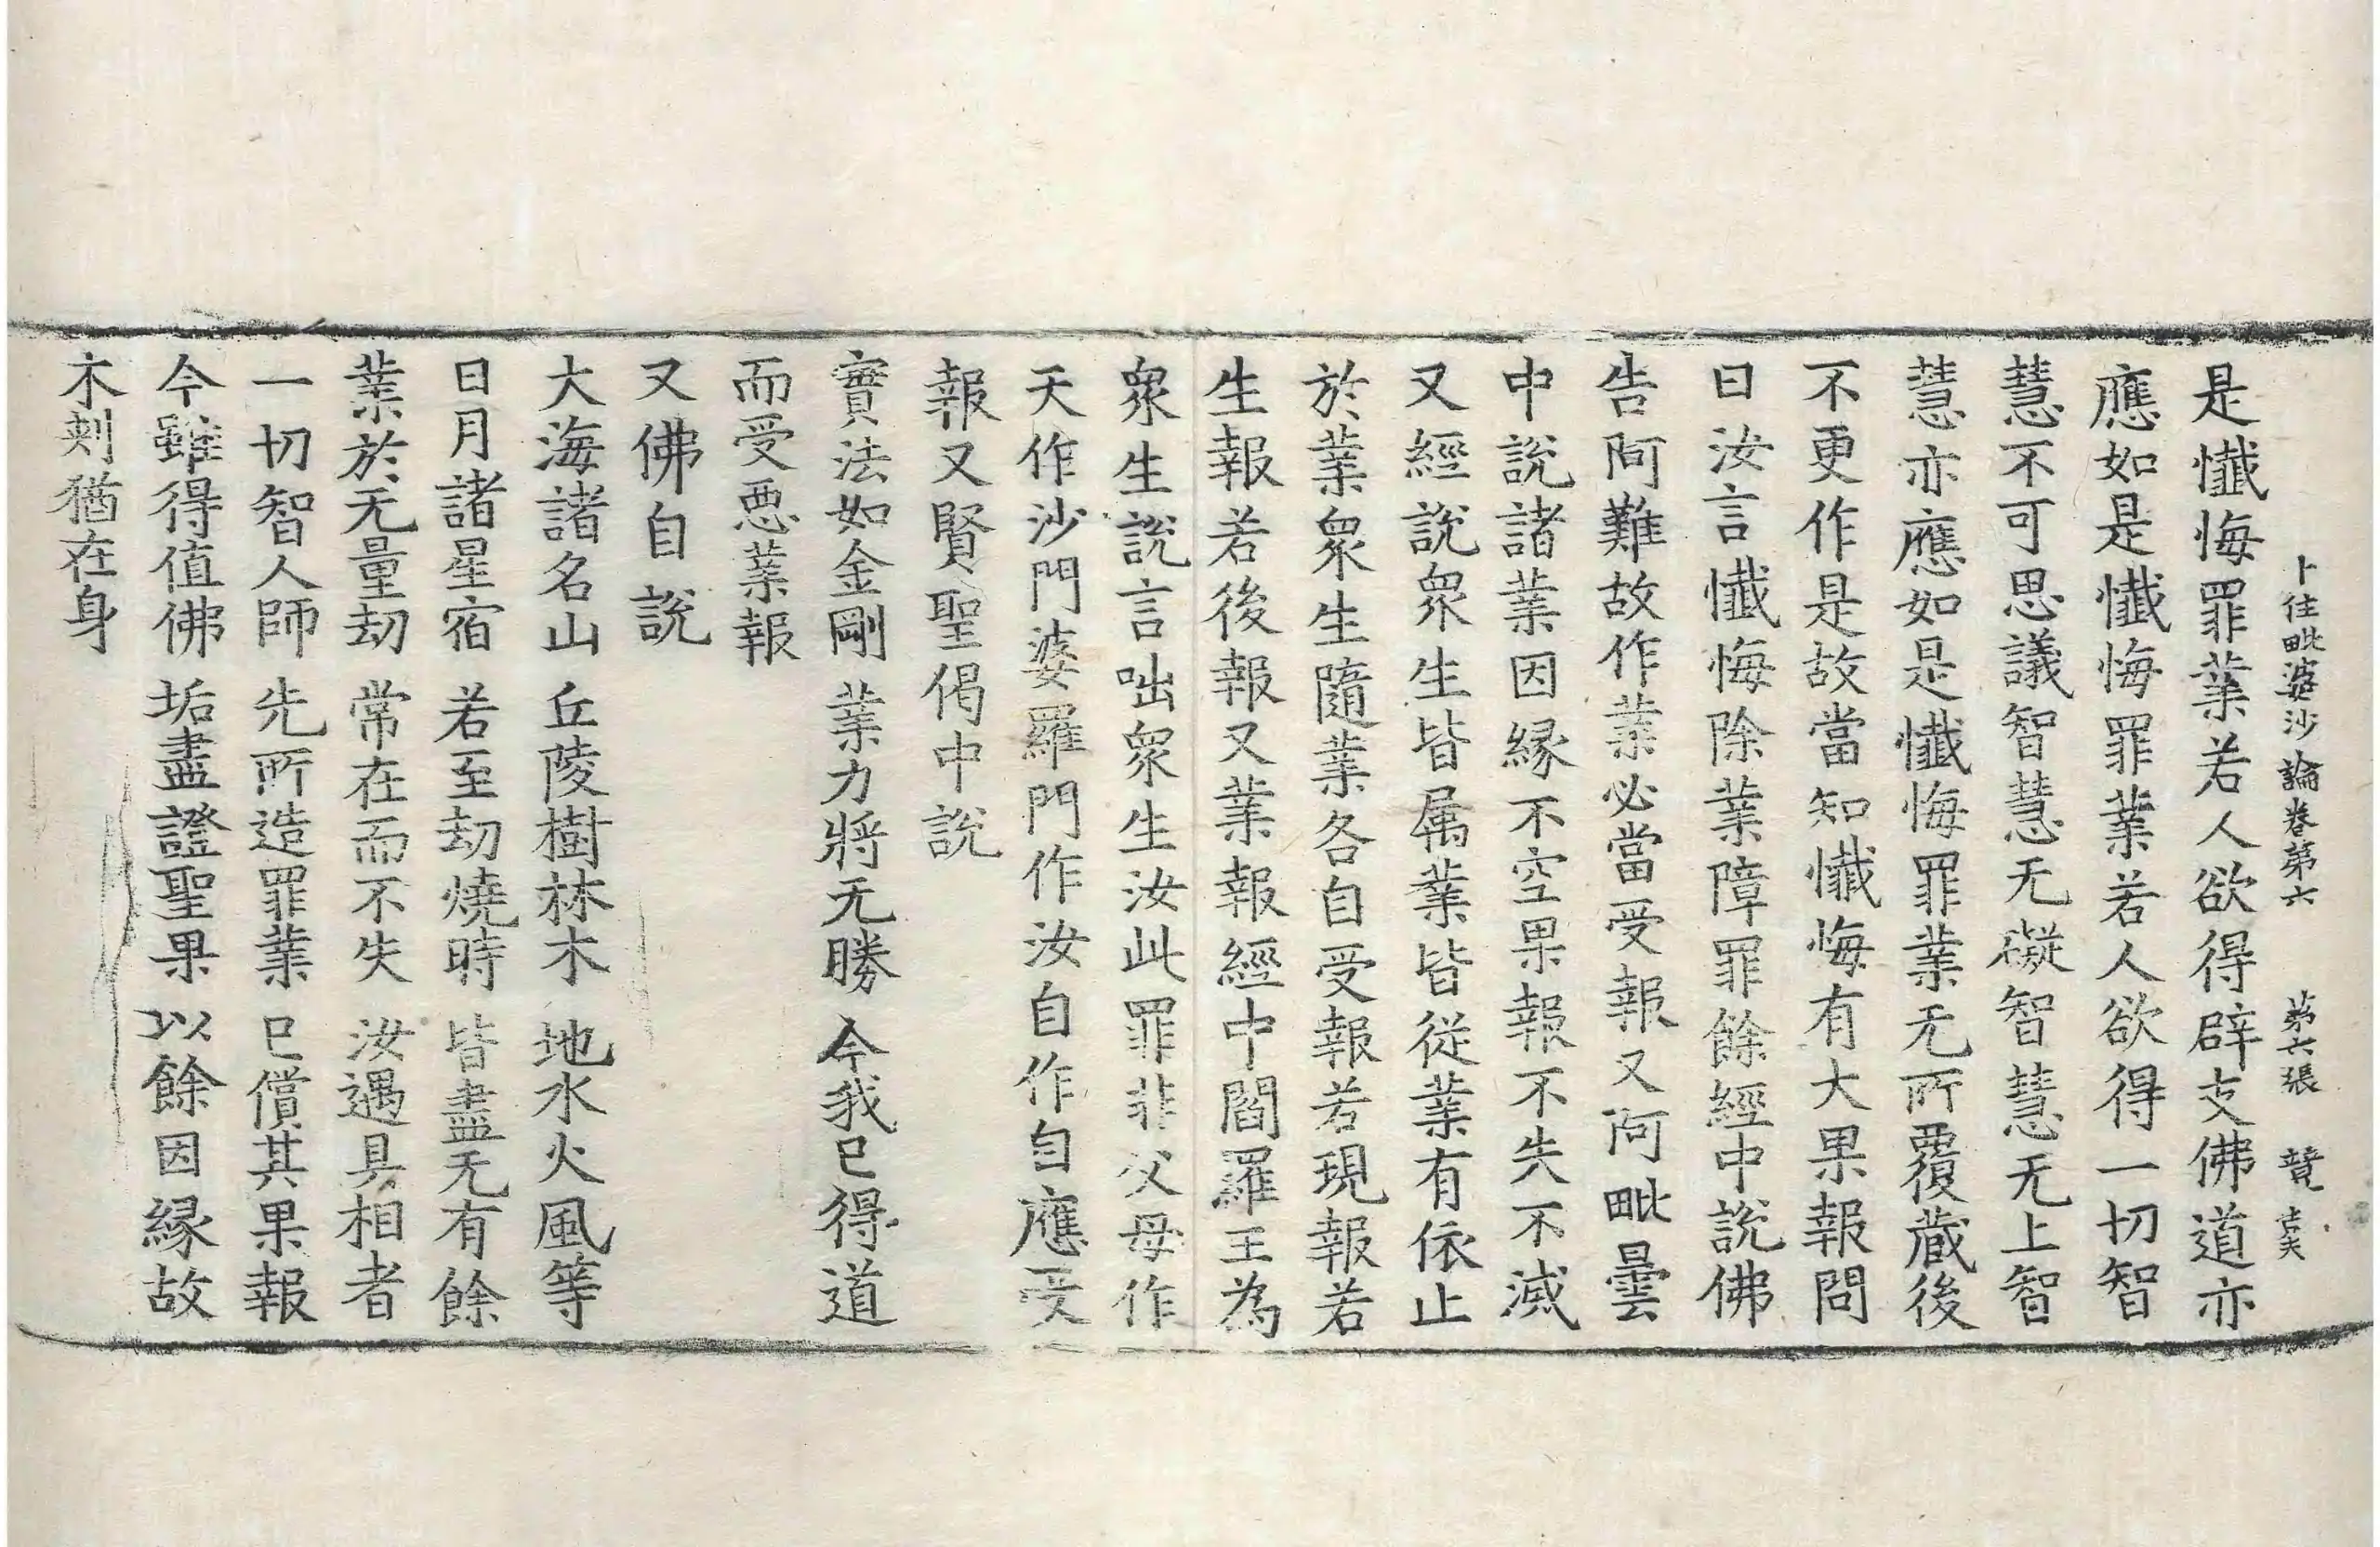 十住毗婆沙論卷第六　第六張　贊　吉夫
是懺悔罪業若人欲得辟支佛道亦
應如是懺悔罪業若人欲得一切智
慧不可思議智慧无礙智慧无上智
慧亦應如是懺悔罪業无所覆藏後
不更作是故當知懺悔有大果報問
曰汝言懺悔除業障罪餘經中說佛
告阿難故作業必當受報又阿毗曇
中說諸業因縁不空果報不失不滅
又經說衆生皆属業皆從業有依止
於業衆生隨業各自受報若現報若
生報若後報又業報經中閻羅王為
衆生說言咄衆生汝此罪非父母作
天作沙門婆羅門作汝自作自應受
報又賢聖偈中說
實法如金剛　業力將无勝　今我已得道
而受惡業報
又佛自說
大海諸名山　丘陵樹林木　地水火風等
日月諸星宿　若至劫燒時　皆盡无有餘
業於无量劫　常在而不失　汝遇具相者
一切智人師　先所造罪業　已償其果報
今雖得值佛　垢盡證聖果　以餘因縁故
木刺猶在身